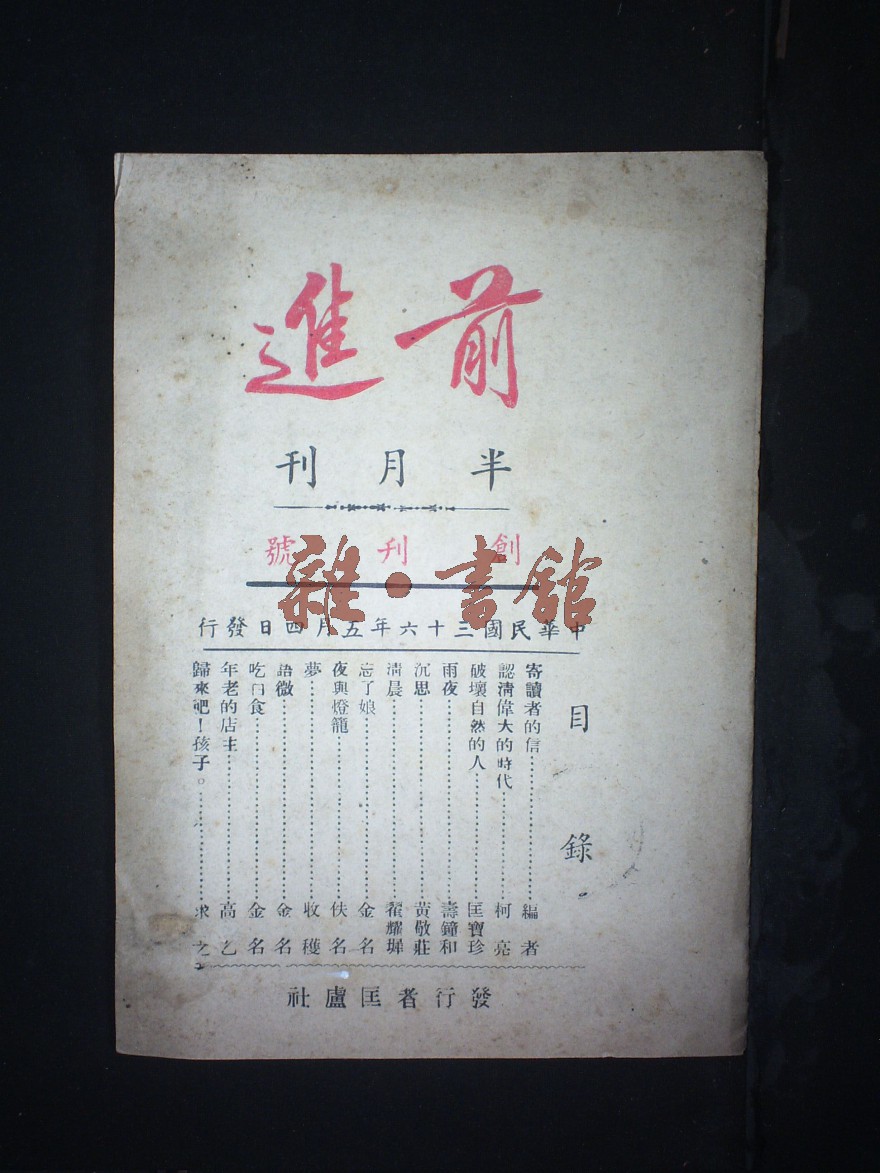 前進
半月刊
創刊號
雜·書館
中華民國三十六年五月四日發行
目錄
寄讀者的信…………編者
認清偉大的時代…………柯亮
破壞自然的人…………匡寶珍
雨夜…………壽鐘和
沉思…………黃敬莊
清晨…………翟耀墀
忘了娘…………金名
夜與燈籠…………佚名
夢…………收穫
語微…………金名
吃白食…………金名
年老的店主…………高乞
歸來吧!孩子。…………求之
發行者匡盧社